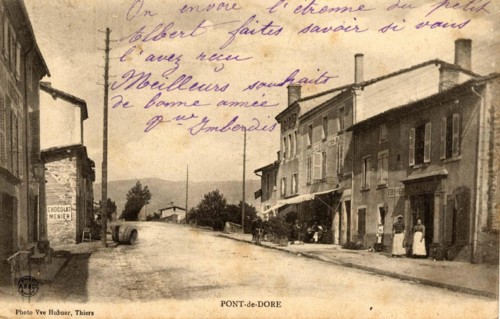 On envoie l'étrenne du petit
Albert faites savoir si vous
l'avez reçu
Meilleurs souhaits
de bonne année
CHOCOLAT
MENIER
PONT-de-DORE
Photo Vve Hubuer, Thiers